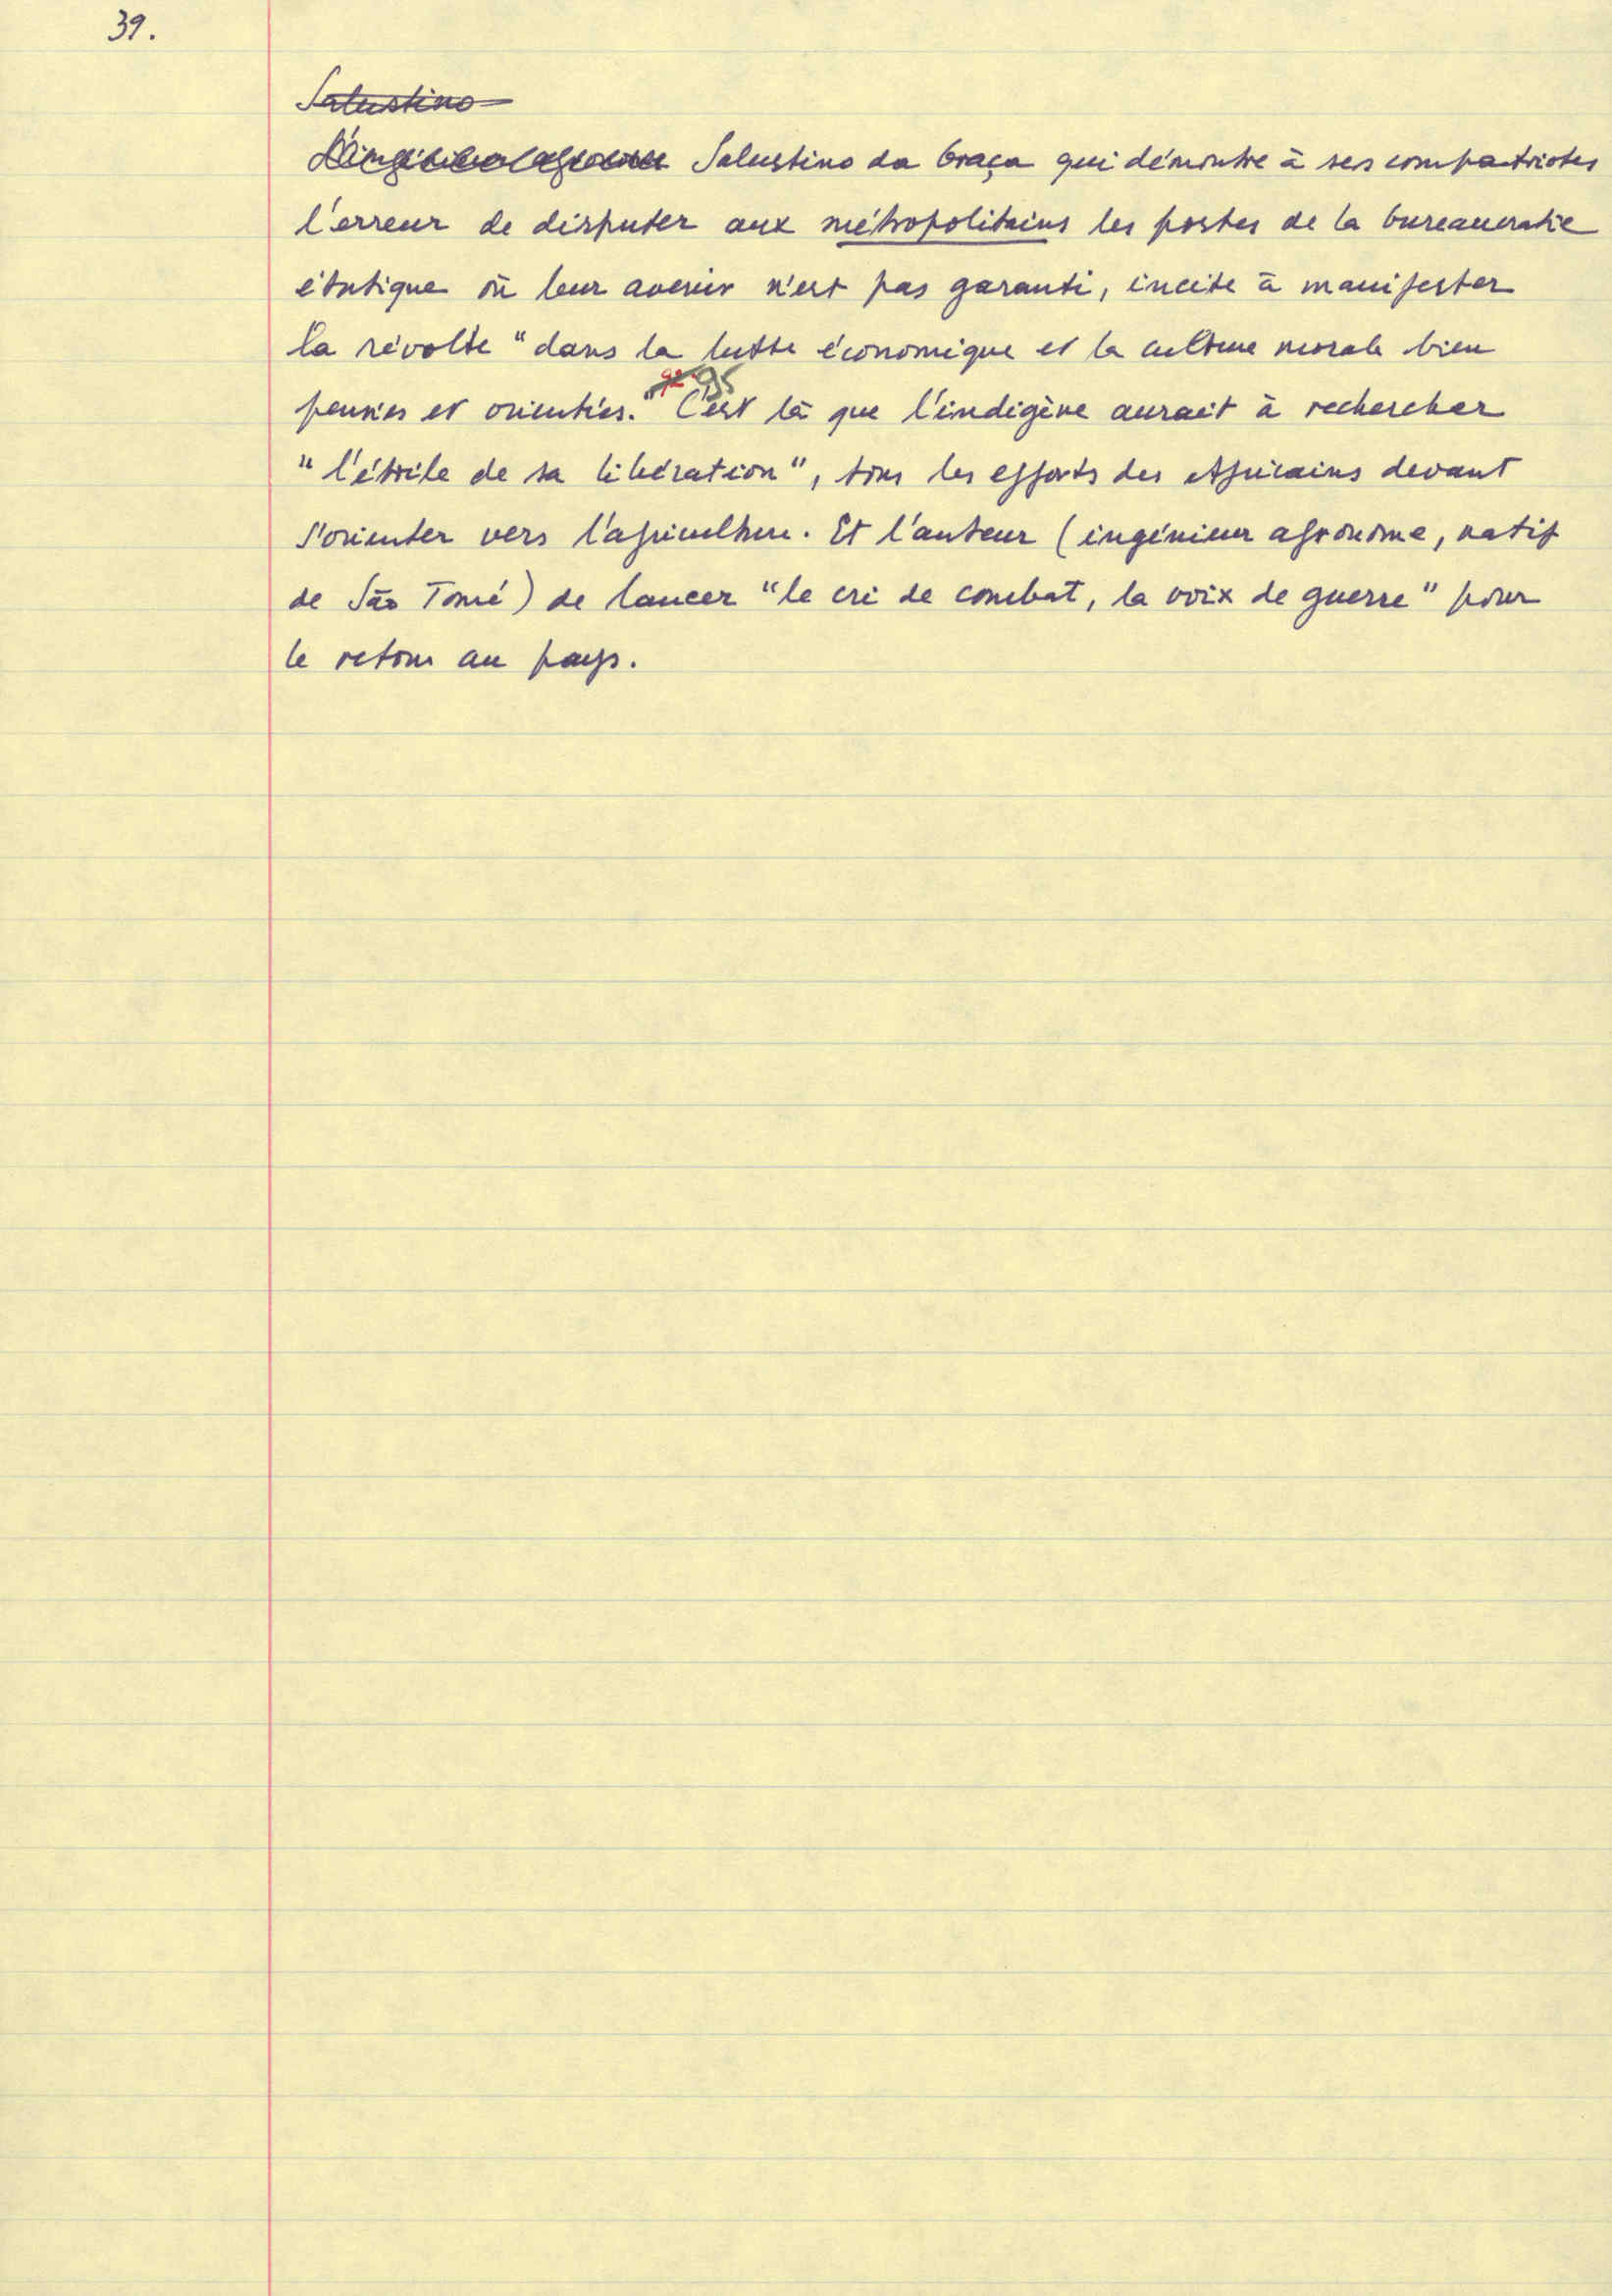 39.
Salustino
L'ingénieur agronome Salustino da Graça qui démontre à ses compatriotes
l'erreur de disputer aux métropolitains les postes de la bureaucratie
étatique où leur avenir n'est pas garanti, incite à manifester
la révolte "dans la lutte économique et la culture morale bien
pensées et orientées." 92 95 C'est là que l'indigène aurait à rechercher
"l'étoile de sa libération", tous les efforts des Africains devant
s'orienter vers l'agriculture. Et l'auteur (ingénieur agronome, natif
de São Tomé) de lancer "le cri de combat, la voix de guerre" pour
le retour au pays.